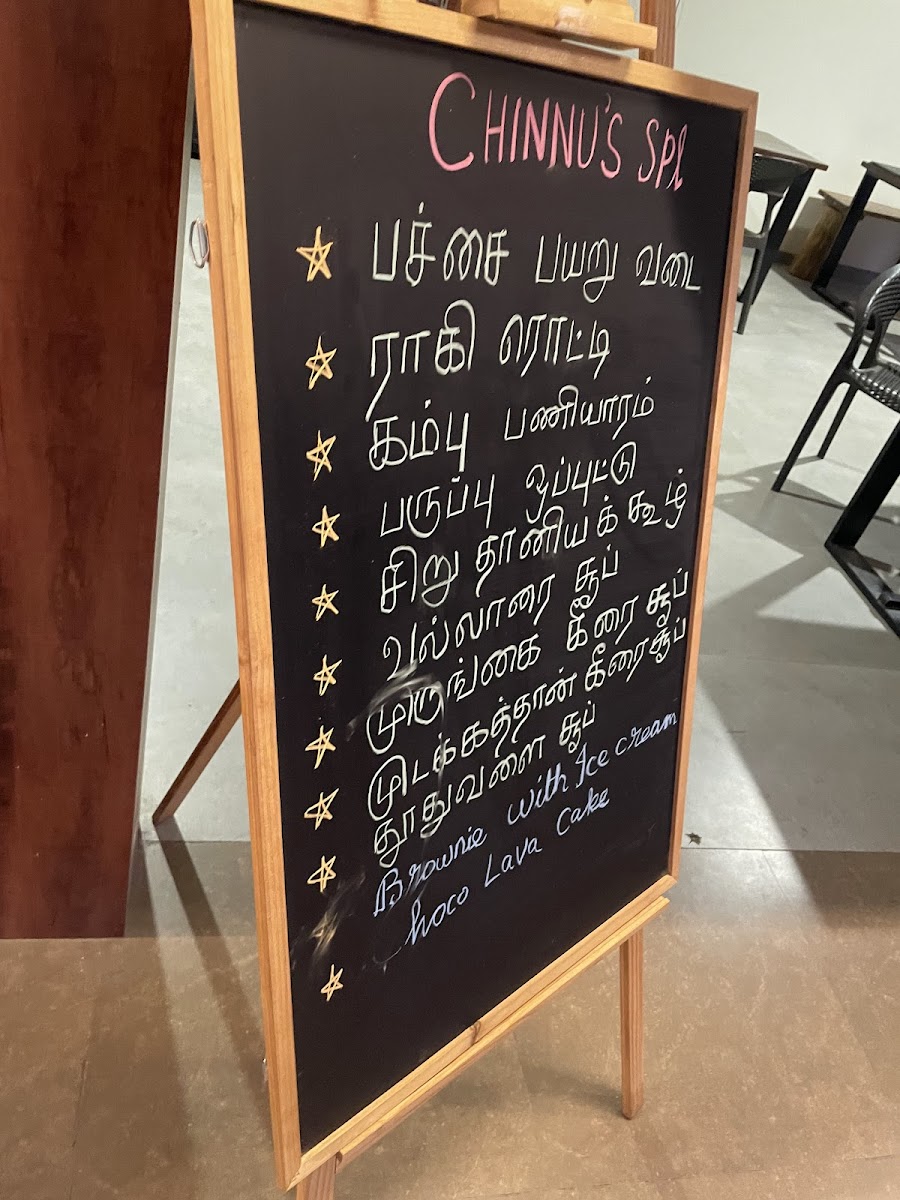 CHINNU'S Spl
பச்சை பயறு வடை
ராகி ரொட்டி
கம்பு பணியாரம்
பருப்பு ஒப்புட்டு
சிறு தானியக் கூழ்
வல்லாரை சூப்
முருங்கை கீரை சூப்
முடக்கத்தான் கீரை சூப்
தூதுவளை சூப்
Brownie with Ice cream
Choco Lava Cake